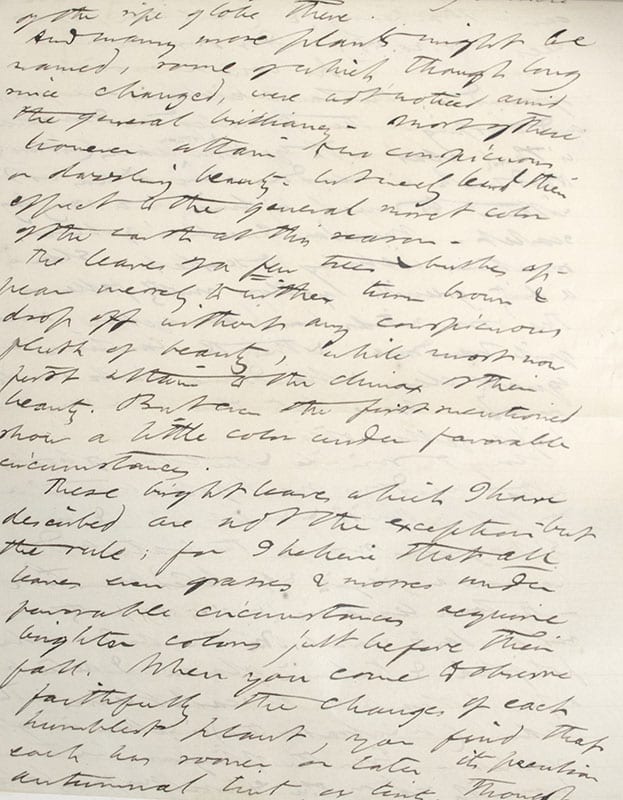 of the ripe globe there.
And many more plants might be
named, some of which though long
since changed, were not noticed amid
the general brilliancy - Most of these
however attain to no conspicuous
or dazzling beauty - but merely lend their
effect to the general russet color
of the earth at this season -
The leaves of a few trees & bushes ap-
pear merely to wither turn brown &
drop off without any conspicuous
flush of beauty, while most now
first attain to the climax of their
beauty. But even the first mentioned
show a little color under favorable
circumstances.
These bright leaves which I have
described are not the exception but
the rule; for I believe that all
leaves even grasses & mosses under
favorable circumstances acquire
brighter colors just before their
fall. When you come to observe
faithfully the changes of each
humblest plant, you find that
each has sooner or later its peculiar
autumnal tint, or tints, though